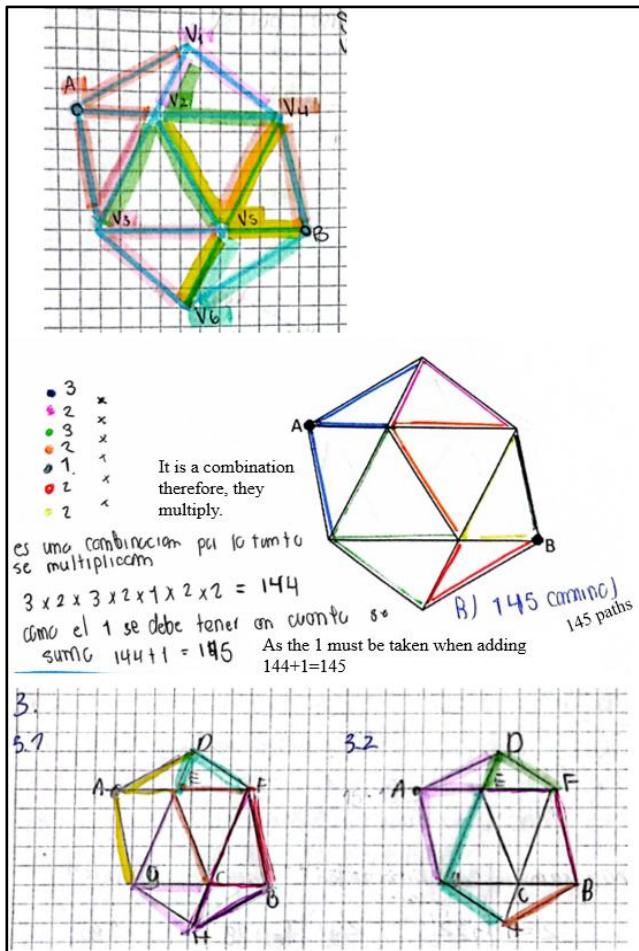 V1
A
V2
V4
V3
V5
B
V6
3
2 x
3 x
2 x
1. x
2 x
2 x
A
B
It is a combination
therefore, they
multiply.
es una combinacion por lo tanto
se multiplican
3 x 2 x 3 x 2 x 1 x 2 x 2 = 144
como el 1 se debe tener en cuenta se
suma 144+1 = 145
R) 145 caminos
145 paths
As the 1 must be taken when adding
144+1=145
3.
3.1
3.2
D
A
E
F
G
C
B
H
D
A
E
F
C
B
H